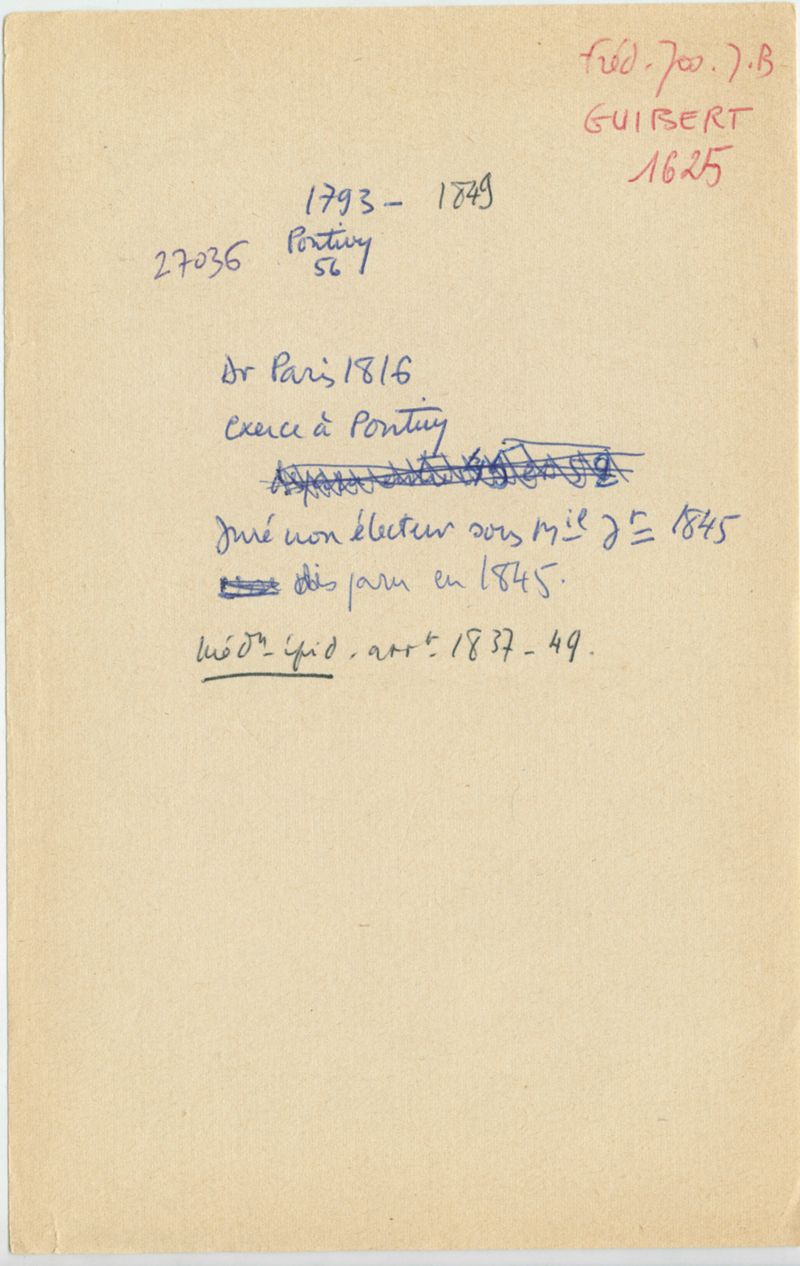 Fréd. Jos. J.B
GUIBERT
1625
1793 - 1849
27036 Pontivy
56
Dr Paris 1816
exerce à Pontivy
Juré non électeur sous Mil Jt 1845
disparu en 1845.
Médn épid. arrt 1837 - 49.